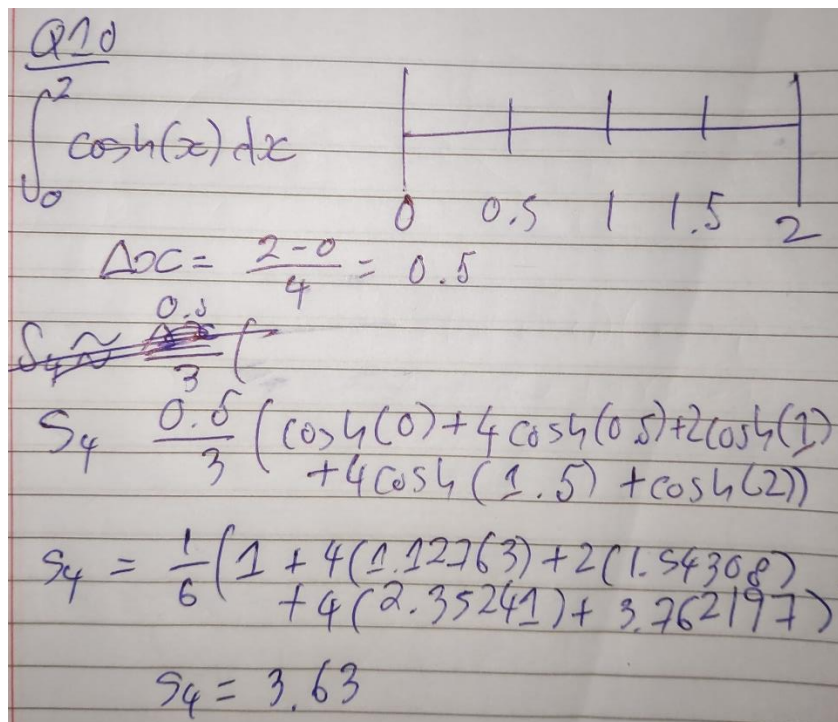 Q10
∫₀² cosh(x) dx
0 0.5 1 1.5 2
Δx = (2-0)/4 = 0.5
S₄ ≈ 0.5/3 (
S₄ 0.5/3 (cosh(0) + 4cosh(0.5) + 2cosh(1)
+ 4cosh(1.5) + cosh(2))
S₄ = 1/6 (1 + 4(1.12763) + 2(1.54308)
+ 4(2.35241) + 3.762197)
S₄ = 3.63